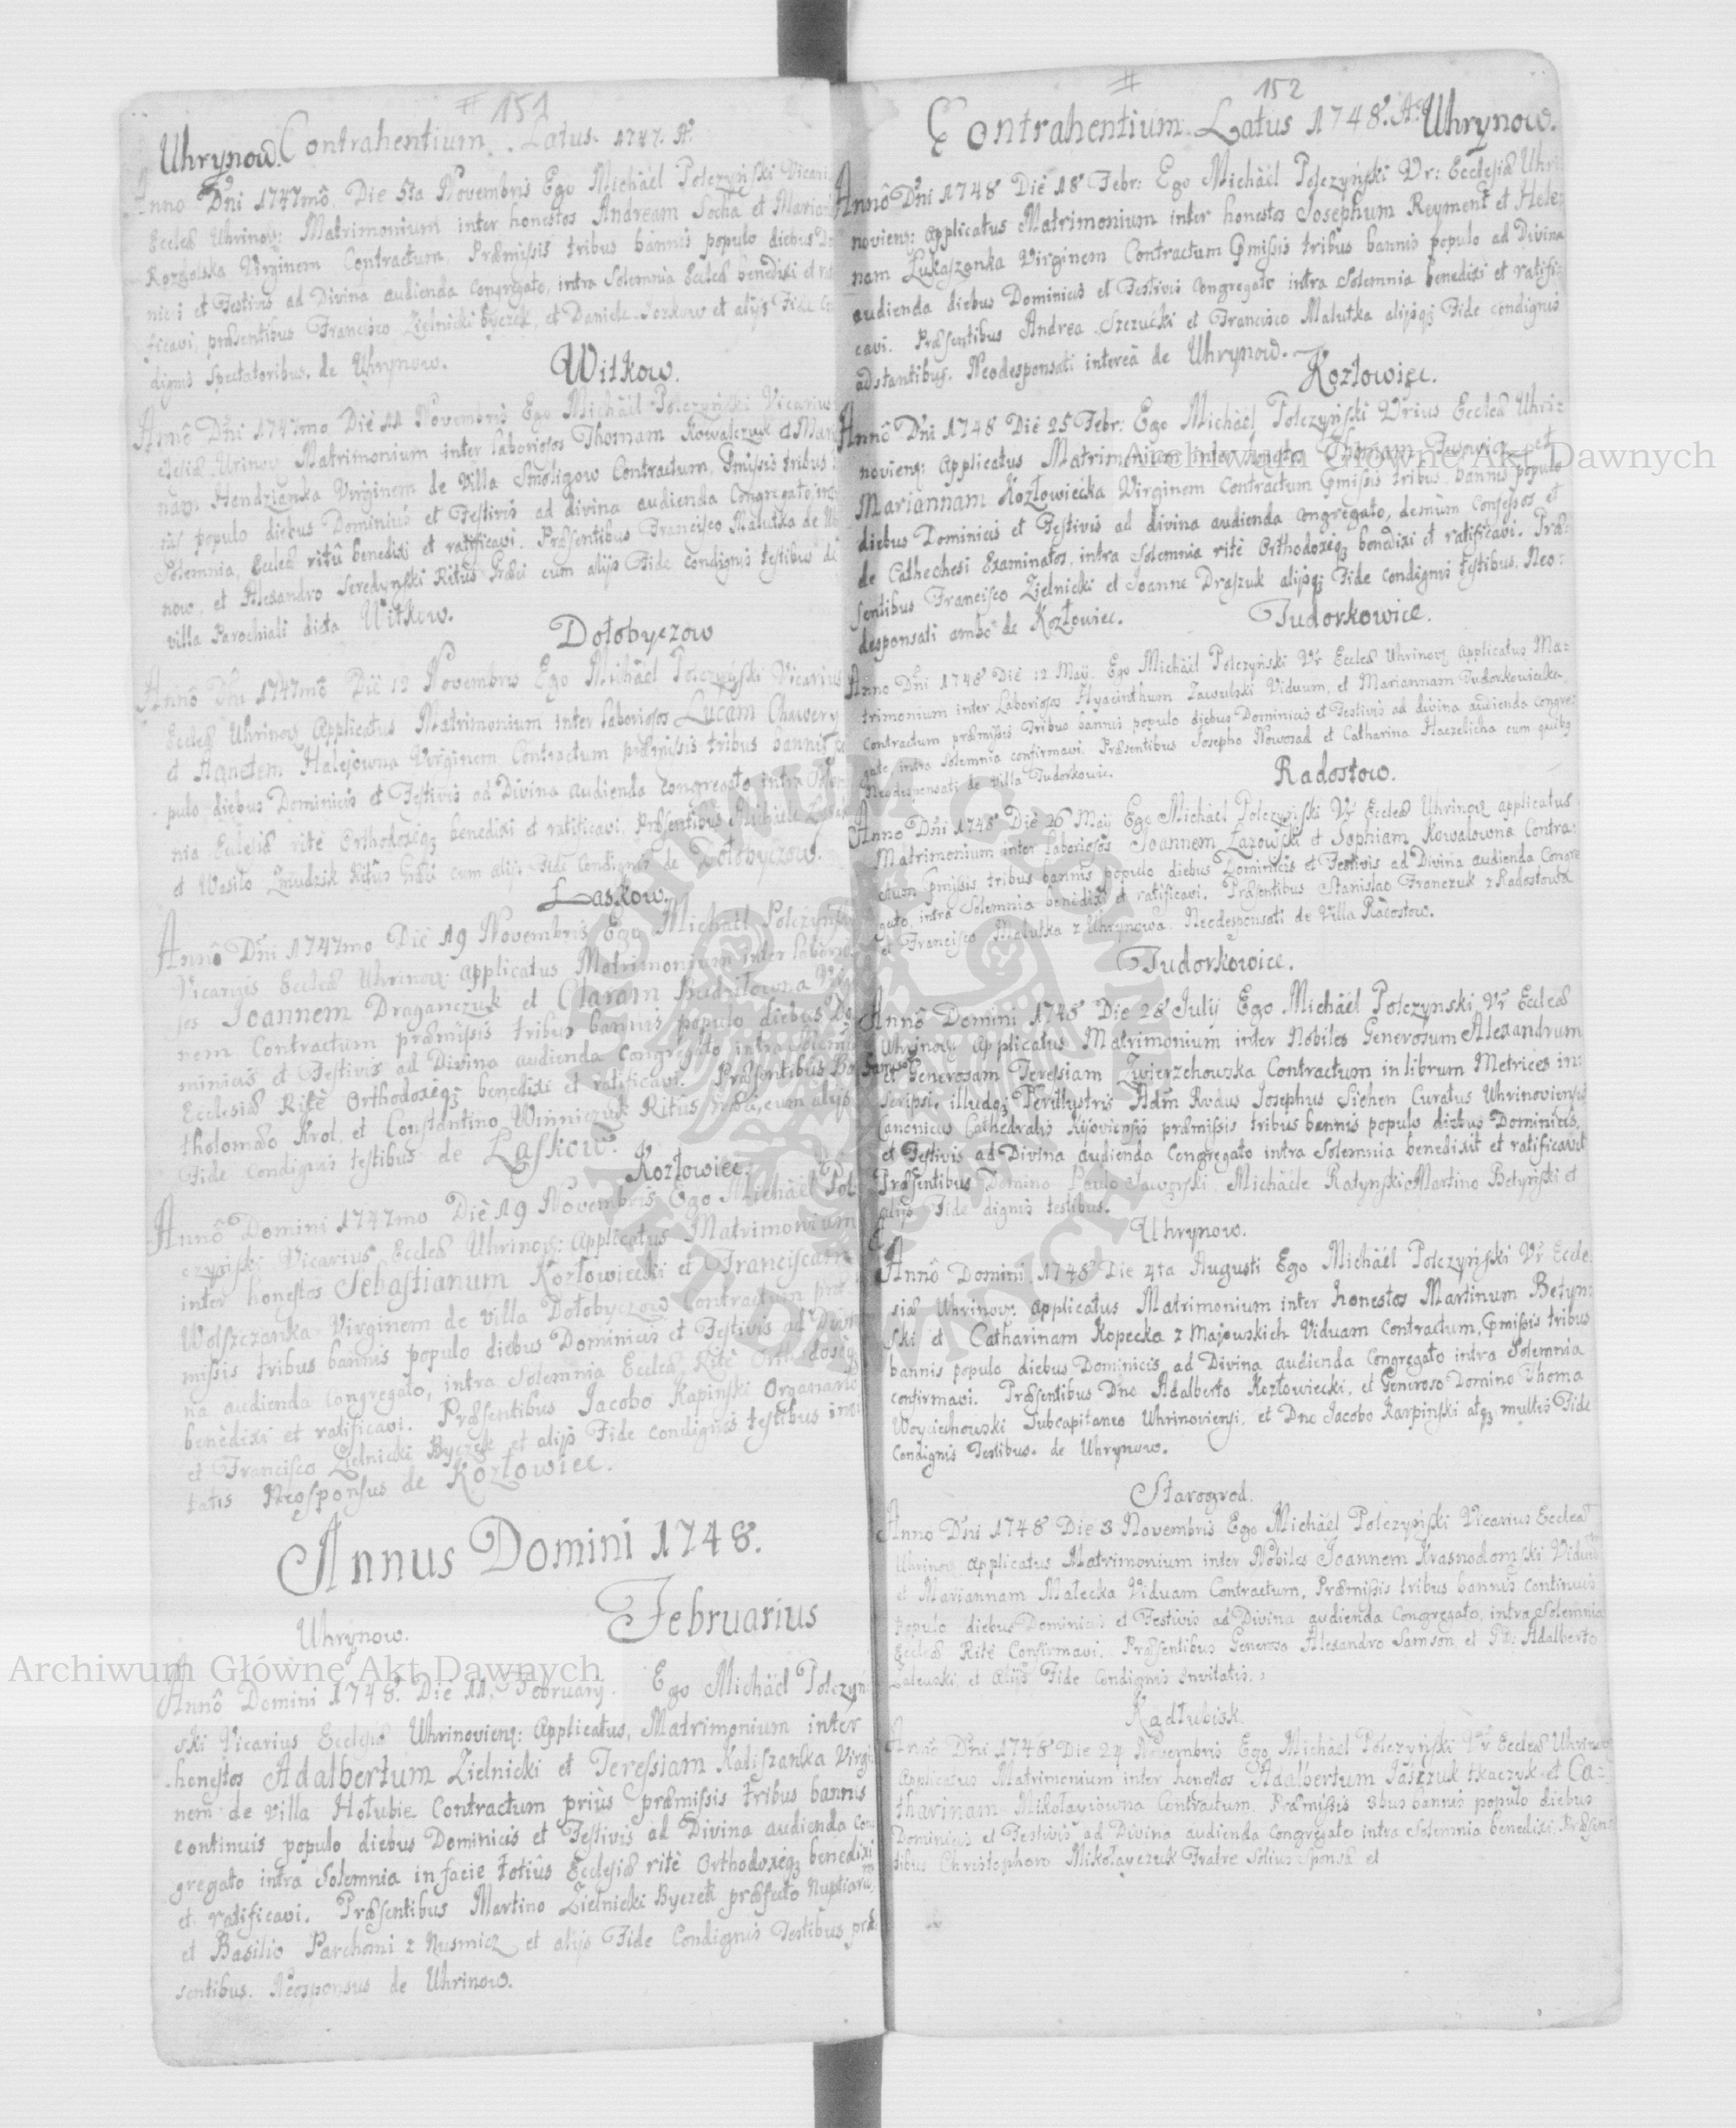 151
Uhrynow. Contrahentium. Latus. 1747. A°
Anno Dni 1747mô. Die 5ta Novembris Ego Michäel Połczyński Vicari
Eccleæ Uhrinov: Matrimonium inter honestos Andream Socha et Marian
Virginem Contractum, Præmissis tribus bannis populo diebus Do
nicis et Festivis ad Divina audienda congregato, intra Solemnia Eccleæ benedixi et rati
ficavi, præsentibus Francisco Zielnicki Byczek, et Daniele et alijs Fide Con
dignis Spectatoribus. de Uhrynow.
Witkow.
Annô Dni 1747mo Die 11 Novembris Ego Michäel Połczyński Vicarius
Matrimonium inter laboriosos Thomam Kowalczuk et Mari
nam Hendrzianka Virginem de Villa Smoligow Contractum, Pmissis tribus
populo diebus Dominicis et Festivis ad divina audienda congregato intra
Solemnia, Eccleæ ritû benedixi et ratificavi. Præsentibus Francisco Malutka de Uhry
now, et Alexandro Seredynski Ritûs Græci cum alijs Fide condignis testibus de
villa Parochiali dicta Witkow.
Dołobyczow
Annô Dni 1747mô Die 12 Novembris Ego Michäel Połczyński Vicarius
Eccleæ Uhrinov applicatus Matrimonium inter laboriosos Lucam Chwery
et Agnetem Halejowna Virginem Contractum præmissis tribus bannis po
pulo diebus Dominicis et Festivis ad Divina audienda congregato intra Solem
nia Ecclesiæ ritè Orthodoxèqz benedixi et ratificavi. Præsentibus Michäele
et Wasilo Zmudzik Ritûs Græci cum alijs Fide condignis de Dołobyczow.
Laskow.
Annô Dni 1747mo Die 19 Novembris Ego Michäel Połczyński
Vicarius Eccleæ Uhrinov: applicatus Matrimonium inter laborio
sos Joannem Draganczuk et Claram Budziłowna Virgi
nem Contractum præmissis tribus bannis populo diebus Do
minicis et Festivis ad Divina audienda congregato intra Solemnia
Ecclesiæ Ritè Orthodoxèqz benedixi et ratificavi. Præsentibus Bar
tholomæo Krol, et Constantino Winniczuk Ritûs Græci, cum alijs
Fide condignis testibus de Laskow.
Kozłowiec.
Annô Domini 1747mo Die 19 Novembris Ego Michäel Poł
czyński Vicarius Eccleæ Uhrinov: applicatus Matrimonium
inter honestos Sebastianum Kozłowiecki et Franciscam
Wolszczanka Virginem de villa Dołobyczow Contractum præ
missis tribus bannis populo diebus Dominicis et Festivis ad Divi
na audienda congregato, intra Solemnia Eccleæ Ritè Orthodoxèqz
benèdixi et ratificavi. Præsentibus Jacobo Kapinski Organario
et Francisco Zielnicki Byczek et alijs Fide condignis testibus invi
tatis Neosponsus de Kozłowiec.
Annus Domini 1748.
Februarius
Uhrynow.
Annô Domini 1748. Die 11. February. Ego Michäel Połczyń
ski Vicarius Ecclesiæ Uhrinovienz: applicatus, Matrimonium inter
honestos Adalbertum Zielnicki et Teressiam Kadiszanka Virgi
nem de villa Hołubie Contractum priùs præmissis tribus bannis
continuis populo diebus Dominicis et Festivis ad Divina audienda con
gregato intra Solemnia in facie totiûs Ecclesiæ ritè Orthodoxèqz benedixi
et ratificavi. Præsentibus Martino Zielnicki Byczek præfecto Nuptiarum
et Basilio Parchomi z Nusmicz et alijs Fide Condignis Testibus præ
sentibus. Neosponsus de Uhrinow.
152
Contrahentium. Latus 1748. A° Uhrynow.
Annô Dni 1748 Diè 18 Febr: Ego Michäel Połczyński Vr: Ecclesiæ Uhri
novienz: applicatus Matrimonium inter honestos Josephum Reyment et Hele
nam Łukaszonka Virginem Contractum Pmissis tribus bannis populo ad Divina
audienda diebus Dominicis et Festivis congregato intra Solemnia benedixi et ratifi
cavi. Præsentibus Andrea Szczucki et Francisco Malutka alijsqz Fide condignis
adstantibus. Neodesponsati intereà de Uhrynow.
Kozłowiec.
Annô Dni 1748 Diè 25 Febr: Ego Michäel Połczyński Vrius Eccleæ Uhri:
novienz: applicatus Matrimonium inter honestos Thomam et
Mariannam Kozłowiecka Virginem Contractum Pmissis tribus bannis populo
diebus Dominicis et Festivis ad divina audienda congregato, demùm confessos et
de Cathechesi Examinatos, intra Solemnia ritè Orthodoxèqz benedixi et ratificavi. Præ:
sentibus Francisco Zielnicki et Joanne Draszuk alijsqz Fide condignis testibus. Neo:
desponsati ambo de Kozłowiec.
Tudorkowice.
Anno Dni 1748 Diè 12 Maij. Ego Michäel Połczyński Vr Eccleæ Uhrinov applicatus Ma:
trimonium inter Laboriosos Hyacinthum Zawulski Viduum, et Mariannam Tudorkowiecka
Contractum præmissis Tribus bannis populo diebus Dominicis et Festivis ad divina audienda congre:
gato intra Solemnia confirmavi. Præsentibus Josepho Noworad et Catharina Haczelicha cum quibz
Neodesponsati de villa Tudorkowic.
Radostow.
Anno Dni 1748 Diè 26 Maij Ego Michäel Połczyński Vr Eccleæ Uhrinov applicatus
Matrimonium inter laboriosos Joannem Łazowski et Sophiam Kowalowna Contra:
ctum Pmissis tribus bannis populo diebus Dominicis et Festivis ad Divina audienda Congre
gato, intra Solemnia benedixi et ratificavi. Præsentibus Stanislao Franczuk z Radostowa
et Francisco Malutka z Uhrynowa. Neodesponsati de Villa Radostow.
Tudorkowice.
Annô Domini 1748 Die 28 Julij Ego Michäel Połczynski Vr Eccleæ
Uhrinov: applicatus Matrimonium inter Nobiles Generosum Alexandrum
Samson et Generosam Teressiam Zwierzchowska Contractum in librum Metrices in:
scripsi, illudqz Perillustris Adm Rndus Josephus Siehen Curatus Uhrinoviensis
Canonicus Cathedralis Kijoviensis præmissis tribus bannis populo diebus Dominicis,
et Festivis ad Divina audienda congregato intra Solemnia benedixit et ratificavit
Præsentibus Domino Paulo Jaworski Michäele Ratynski Martino Betyński et
alijs Fide dignis testibus.
Uhrynow.
Annô Domini 1748 Die 4ta Augusti Ego Michäel Połczyński Vr Eccle
siæ Uhrinov: applicatus Matrimonium inter honestos Martinum Betyn:
ski et Catharinam Kopecka z Majewskich Viduam Contractum, Pmissis tribus
bannis populo diebus Dominicis ad Divina audienda congregato intra Solemnia
confirmavi. Præsentibus Dno Adalberto Kozłowiecki, et Generoso Domino Thoma
Woyciechowski Subcapitaneo Uhrinoviensi, et Dno Jacobo Karpinski atqz multis Fide
Condignis Testibus. de Uhrynow.
Starogrod.
Annô Dni 1748 Die 3 Novembris Ego Michäel Połczyński Vicarius Eccleæ
Uhrinov applicatus Matrimonium inter Nobiles Joannem Krasnodomski Viduum
et Mariannam Małecka Viduam Contractum, Præmissis tribus bannis continuis
populo diebus Dominicis et Festivis ad Divina audienda congregato, intra Solemnia
Eccleæ Ritè Confirmavi. Præsentibus Generoso Alexandro Samson et Adalberto
Zalewski, et Alijs Fide Condignis Invitatis.
Kadłubisk.
Anno Dni 1748 Die 24 Novembris Ego Michäel Połczyński Vr Eccleæ Uhrinov
Applicatus Matrimonium inter honestos Adalbertum Jaszczuk tkaczyk et Ca:
tharinam Mikołayiowna Contractum. Præmissis 3bus bannis populo diebus
Dominicis et Festivis ad Divina audienda congregato intra Solemnia benedixi. Præsen
tibus Christophoro Mikołayczuk Fratre Sponsæ et
Archiwum Główne Akt Dawnych
Archiwum Główne Akt Dawnych
ARCHIWUM GŁÓWNE AKT DAWNYCH